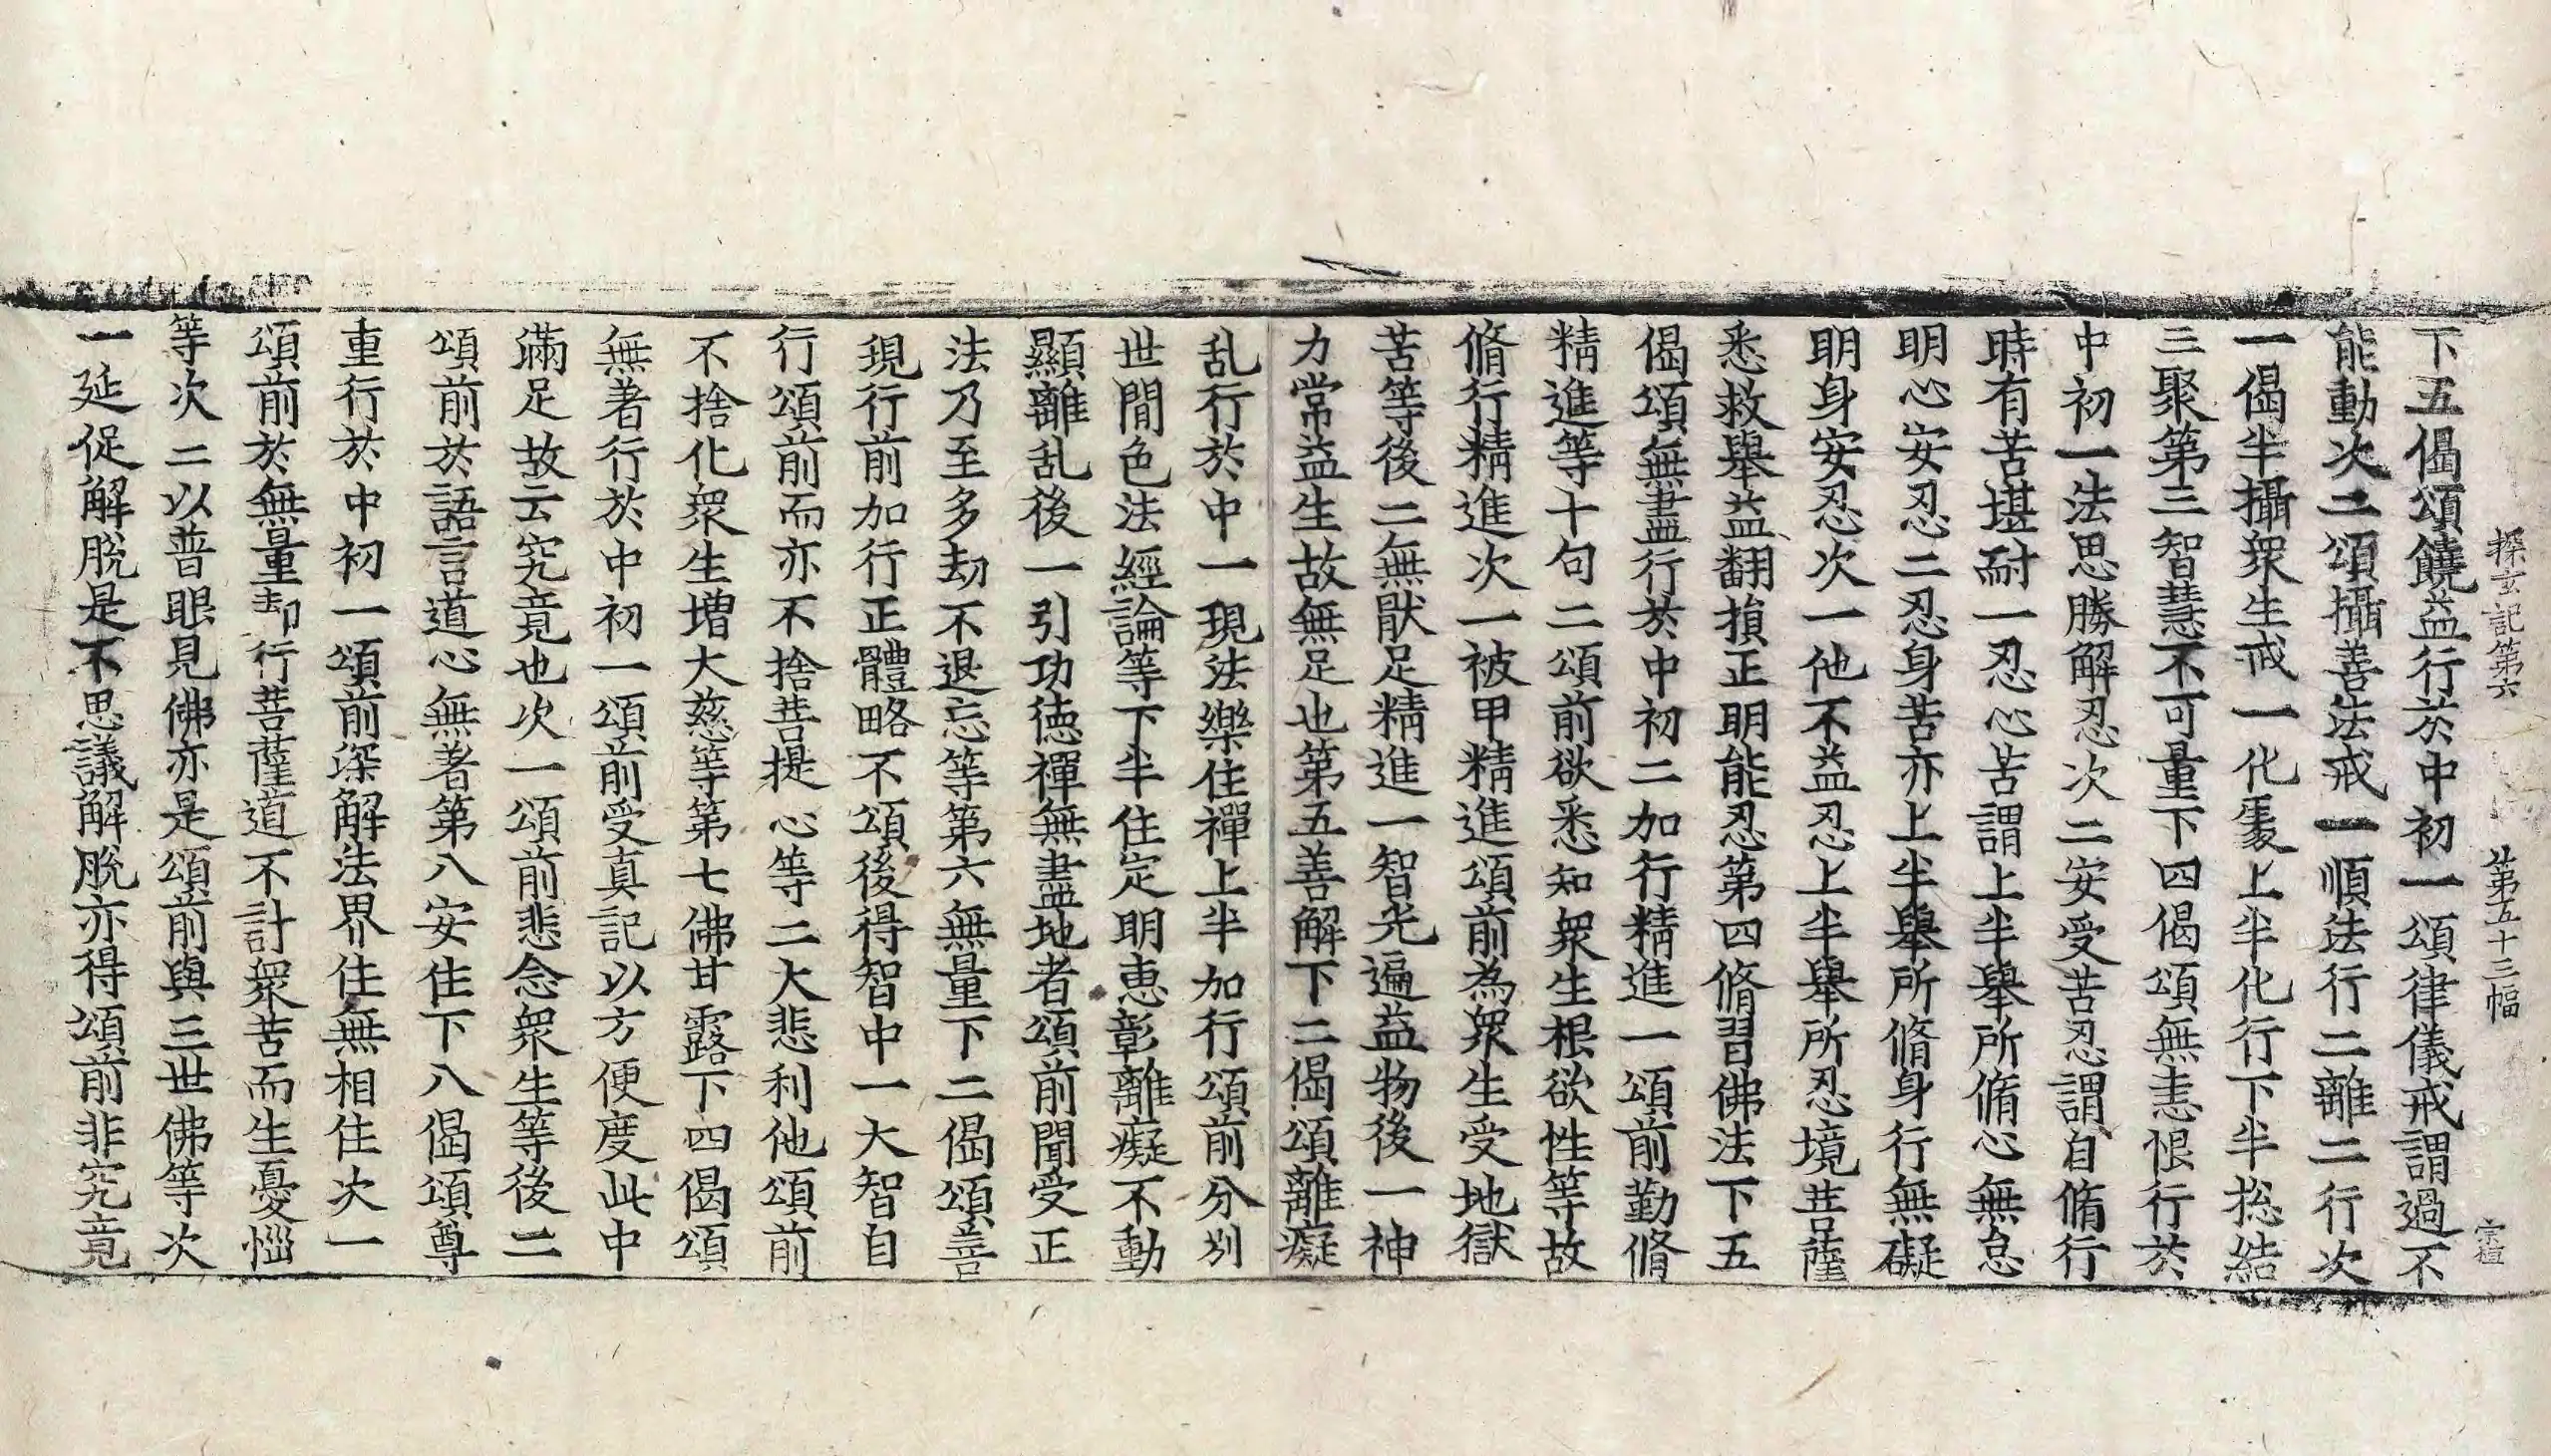 探玄記第六 第五十三幅 宗植
下五偈頌饒益行於中初一頌律儀戒謂過不
能動次二頌攝善法戒一順法行二離二行次
一偈半攝衆生戒一化處上半化行下半捴結
三聚第三智慧不可量下四偈頌無恚恨行於
中初一法思勝解忍次二安受苦忍謂自脩行
時有苦堪耐一忍心苦謂上半舉所脩心無怠
明心安忍二忍身苦亦上半舉所脩身行無礙
明身安忍次一他不益忍上半舉所忍境菩薩
悉救舉益翻損正明能忍第四脩習佛法下五
偈頌無盡行於中初二加行精進一頌前勤脩
精進等十句二頌前欲悉知衆生根欲性等故
脩行精進次一被甲精進頌前為衆生受地獄
苦等後二無猒足精進一智光遍益物後一神
力常益生故無足也第五善解下二偈頌離癡
乱行於中一現法樂住禪上半加行頌前分別
世間色法經論等下半住定明惠彰離癡不動
顯離乱後一引功徳禪無盡地者頌前聞受正
法乃至多劫不退忘等第六無量下二偈頌善
現行前加行正體略不頌後得智中一大智自
行頌前而亦不捨菩提心等二大悲利他頌前
不捨化衆生增大慈等第七佛甘露下四偈頌
無著行於中初一頌前受真記以方便度此中
滿足故云究竟也次一頌前悲念衆生等後二
頌前於語言道心無著第八安住下八偈頌尊
重行於中初一頌前深解法界住無相住次一
頌前於無量劫行菩薩道不計衆苦而生憂惱
等次二以普眼見佛亦是頌前與三世佛等次
一延促解脫是不思議解脫亦得頌前非究竟